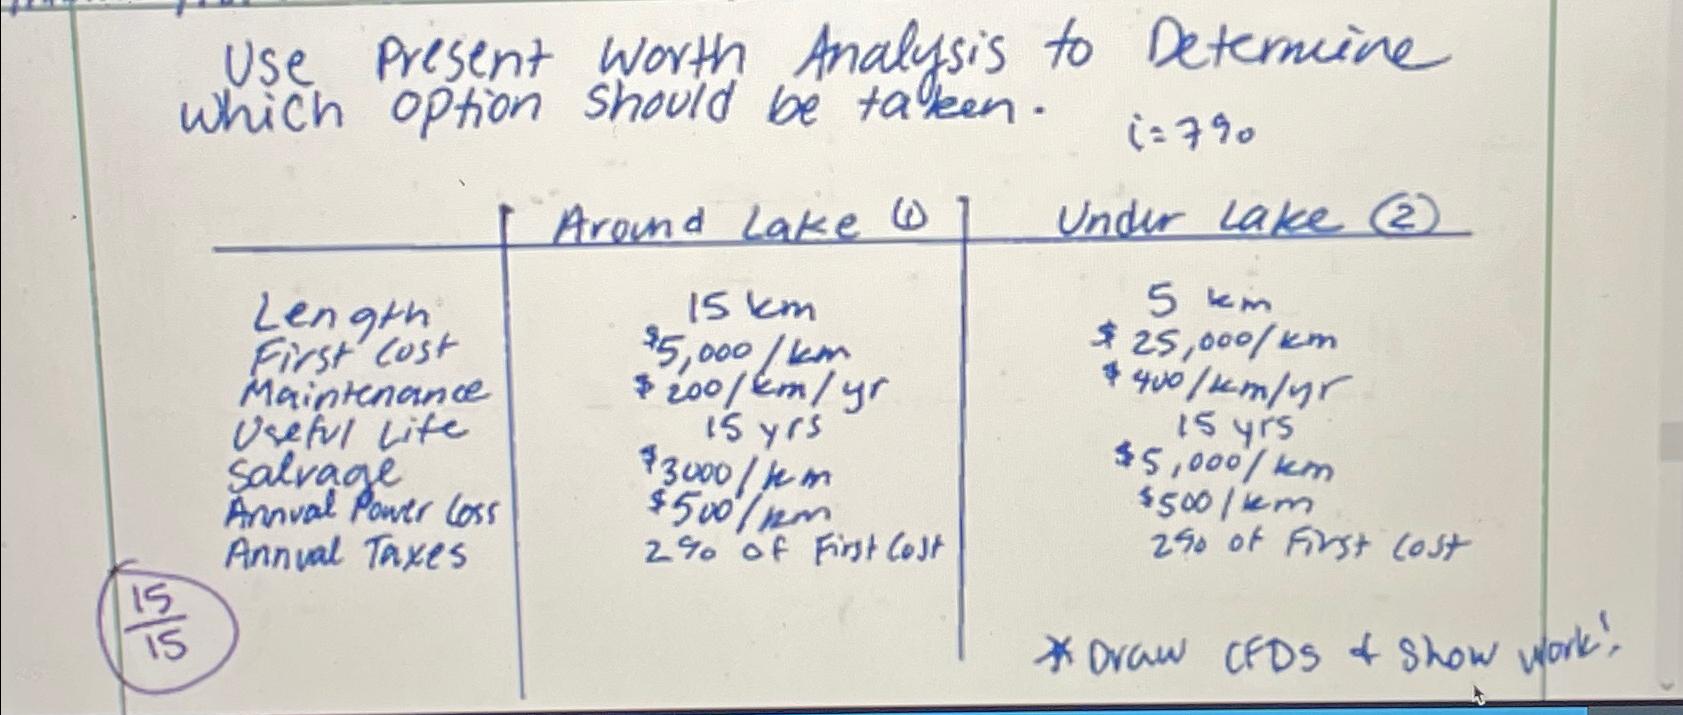 Use Present Worth Analysis to Determine
which option should be taken.
i=7%
Around Lake ① Under Lake ②
Length 15 km 5 km
First Cost $5,000/km $25,000/km
Maintenance $200/km/yr $400/km/yr
Useful Life 15 yrs 15 yrs
Salvage $3000/km $5,000/km
Annual Power Loss $500/km $500/km
Annual Taxes 2% of First Cost 2% of First Cost
15
15
* Draw CFDs & Show work!